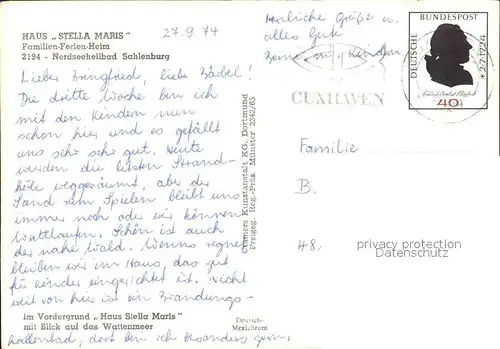 HAUS „STELLA MARIS"
Familien-Ferien-Heim
2194 - Nordseeheilbad Sahlenburg
27.9.74
Lieber Burgfried, liebe Bärbel!
Die dritte Woche bin ich
mit den Kindern nun
schon hier und es gefällt
uns sehr sehr gut. Heute
werden die letzten Strand-
körbe weggeräumt, aber der
Sand zum Spielen bleibt uns
immer noch oder wir können
Wattlaufen. Schön ist auch
der nahe Wald. Wenns regnet
bleiben wir im Haus, das gut
für Kinder eingerichtet ist. Nicht
weit von hier ist ein Brandungs-
hallenbad, dort bin ich besonders gern.
Im Vordergrund „Haus Stella Maris"
mit Blick auf das Wattenmeer
Cramers Kunstanstalt KG. Dortmund
Freigeg. Reg.-Präs. Münster 2342/65
Deutsch-
Mexichrom
Herzliche Grüße u.
alles Gute
Eure mit Kindern
CUXHAVEN
DEUTSCHE
BUNDESPOST
*2.7.1724
40
Familie
B.
48,-
privacy protection
Datenschutz